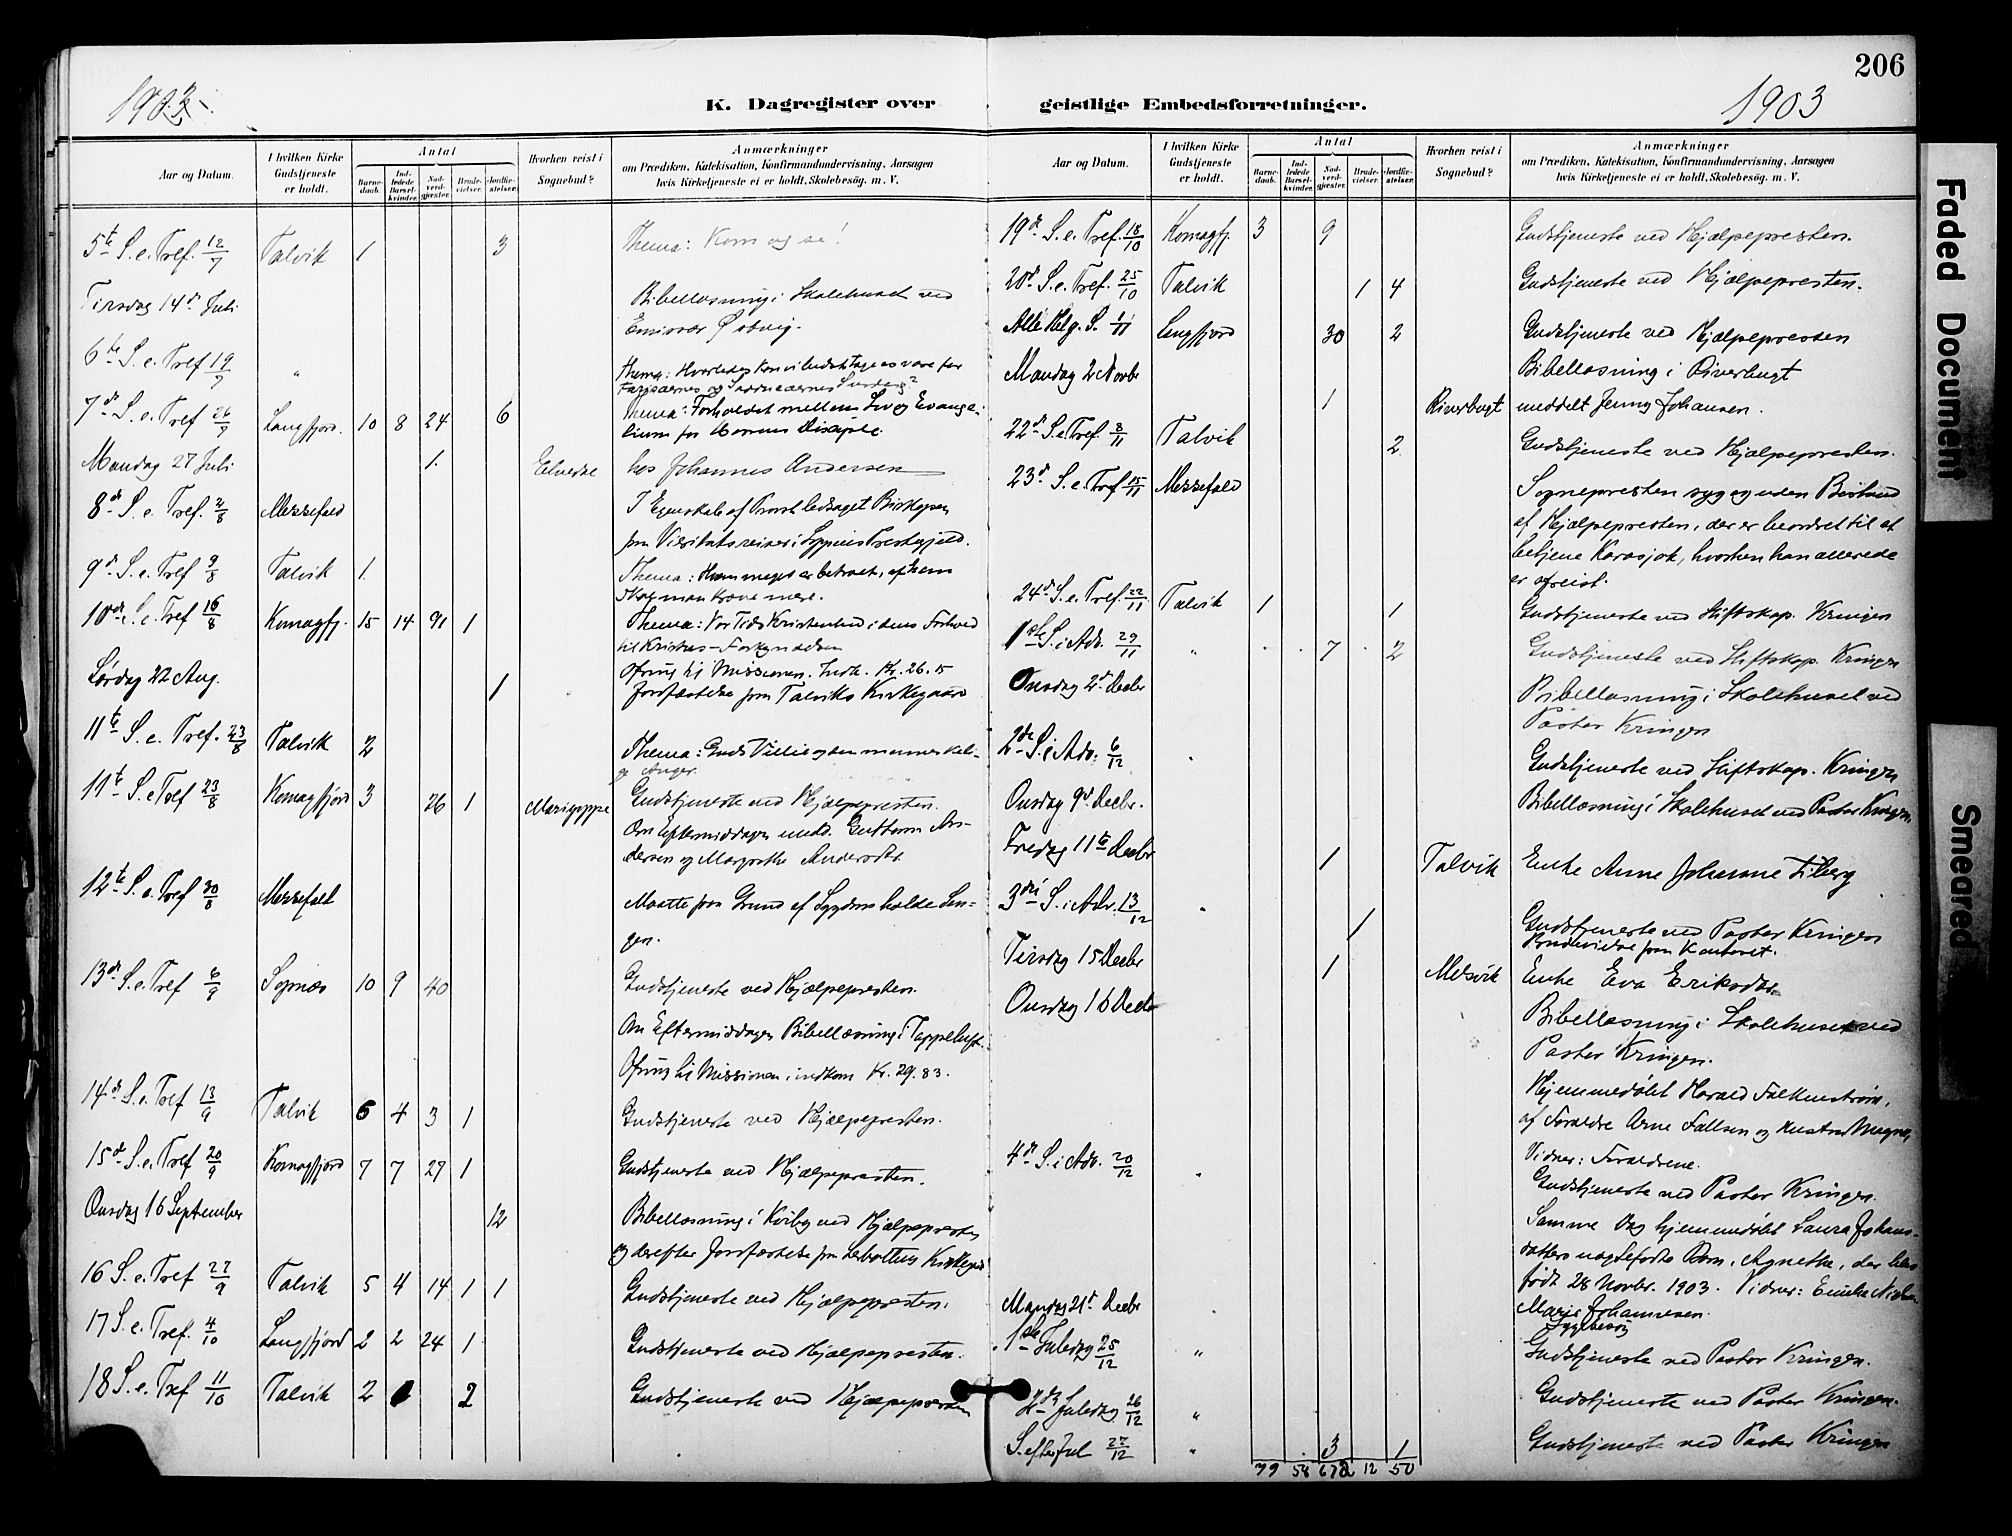 206
1903
K. Dagregister over
geistlige Embedsforretninger.
1903
Aar og Datum.
I hvilken Kirke Gudstjeneste er holdt.
Antal
Barnedaab.
Indledede Barselkvinder.
Nadverdgjæster.
Brudevielser.
Jordfæstelser.
Hvorhen reist i Sognebud?
Anmærkninger
om Prædiken, Katekisation, Konfirmandundervisning, Aarsagen
hvis Kirketjeneste ei er holdt, Skolebesøg. m. V.
5te S. e. Tref. 12/7 Talvik 1 3 Thema: Kom og se!
Tirsdag 14de Juli Bibellæsning i Skolehuset ved
Emissær
6te S. e. Tref 19/7 " Thema: Hvorledes kan vi bedst tage os vare for
Farisæernes og Sadducæernes Surdeig?
7de S. e. Tref 26/7 Langfjord. 10 8 24 6 Thema: Forholdet mellem Lov og Evange-
lium for Herrens Disciple
Mandag 27 Juli 1. hos Johannes Andersen
8de S. e. Tref. 2/8 Messefald I Egenskab af Provst ledsaget Biskopen
paa Visitatsreiser i Loppens Prestegjeld.
9de S. e. Tref 9/8 Talvik 1. Thema: Hvem meget er betroet, af ham
skal man kræve mere.
10de S. e. Tref 16/8 Komagfj. 15 14 91 1 Thema: Vor Tids Kristenhed i dens Forhold
til Kristus-Forkyndelsen
Ofring til Missionen. Indk. Kr. 26.15
Lørdag 22 Aug. 1 Jordfæstelse paa Talviks Kirkegaard
11te S. e. Tref. 23/8 Talvik 2 Thema: Guds Villie og den menneskeli-
ge Anger.
11te S. e. Tref 23/8 Komagfjord 3 26 1 Gudstjeneste ved Hjælpepresten.
Om Eftermiddagen medd. Guttorm An-
dersen og Margrethe Andersdtr
12te S. e. Tref 30/8 Messefald Maatte paa Grund af Sygdom holde Sen-
gen.
13de S. e. Tref 6/9 Sopnæs 10 9 40 Gudstjeneste ved Hjælpepresten.
Om Eftermiddagen Bibellæsning i Tappeluft.
Ofring til Missionen, indkom Kr. 29.83.
14de S. e. Tref 13/9 Talvik 6 4 3 1 Gudstjeneste ved Hjælpepresten.
15de S. e. Tref 20/9 Komagfjord 7 7 27 1 Gudstjeneste ved Hjælpepresten.
Onsdag 16 September 12 Bibellæsning i Kviby ved Hjælpepresten
og derefter Jordfæstelse paa Kirkegrd
16 S. e. Tref 27/9 Talvik 5 4 14 1 1 Gudstjeneste ved Hjælpepresten.
17 S. e. Tref. 4/10 Langfjord 2 2 24 1 Gudstjeneste ved Hjælpepresten.
18 S. e. Tref 11/10 Talvik 2 2 Gudstjeneste ved Hjælpepresten
Aar og Datum.
I hvilken Kirke Gudstjeneste er holdt.
Antal
Barnedaab.
Indledede Barselkvinder.
Nadverdgjæster.
Brudevielser.
Jordfæstelser.
Hvorhen reist i Sognebud?
Anmærkninger
om Prædiken, Katekisation, Konfirmandundervisning, Aarsagen
hvis Kirketjeneste ei er holdt, Skolebesøg. m. V.
19de S. e. Tref. 18/10 Komagfj. 3 9 Gudstjeneste ved Hjælpepresten.
20de S. e. Tref. 25/10 Talvik 1 4 Gudstjeneste ved Hjælpepresten.
Alle Helg. S. 1/11 Langfjord 30 2 Gudstjeneste ved Hjælpepresten
Mandag 2 Novbr Bibellæsning i Riverbugt
1 Riverbugt meddelt Jenny Johansen.
22de S. e. Tref. 8/11 Talvik 2 Gudstjeneste ved Hjælpepresten.
23de S. e. Tref 15/11 Messefald Sognepresten syg og uden Bistand
af Hjælpepresten, der er beordret til at
betjene Karasjok, hvorhen han allerede
er afreist.
24de S. e. Tref. 22/11 Talvik 1 1 Gudstjeneste ved Stiftskap. Kringen
1ste S. i Adv. 29/11 " 7 2 Gudstjeneste ved Stiftskap. Kringen
Onsdag 2de Decbr Bibellæsning i Skolehuset ved
Pastor Kringen
2de S. i Adv. 6/12 " Gudstjeneste ved Stiftskap. Kringen
Onsdag 9de Decbr. Bibellæsning i Skolehuset ved Pastor Kringen.
Fredag 11te Decbr 1 Talvik Enke Anne Johanne
3die S. i Adv. 13/12 " 1 Gudstjeneste ved Pastor Kringen
Brudevielse paa Kontoret.
Tirsdag 15 Decbr 1 Melsvik Enke Eva Eriksdtr
Onsdag 16 Decbr Bibellæsning i Skolehuset ved
Pastor Kringen.
Hjemmedøbt Harald Falkenstrøm,
af Forældre Arne Fallsen og Hustru Magna,
Vidner: Forældrene.
4de S. i Adv. 20/12 " Gudstjeneste ved Pastor Kringen.
Samme Dag hjemmedøbt Laura Johans-
datters uægtefødte Barn, Agnethe, der blev
født 28 Novbr. 1903. Vidner:
Marie Johannesen.
Mandag 21de Decbr " Sygebesøg
1ste Juledag 25/12 " Gudstjeneste ved Pastor Kringen.
2den Juledag 26/12 " Gudstjeneste ved Pastor Kringen.
S. efter Jul 27/12 " 3 1 Gudstjeneste ved Pastor Kringen
79 58 672 12 50
Faded Document
Smeared